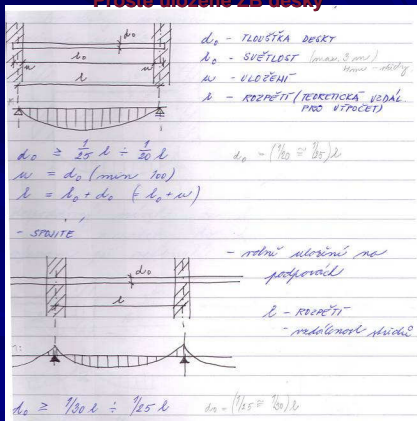 Prostě uložené ŽB desky
d₀
l₀
u
u
l
d₀ - TLOUŠŤKA DESKY
l₀ - SVĚTLOST (max. 3 m)
u - ULOŽENÍ
l - ROZPĚTÍ (TEORETICKÁ VZDÁL. PRO VÝPOČET)
d₀ ≥ 1/25 l ÷ 1/20 l
d₀ - (1/20 ≅ 1/25) l
u = d₀ (min 100)
l = l₀ + d₀ (= l₀ + u)
- SPOJITÉ
d₀
l
- volné uložení na
podporách
l - ROZPĚTÍ
- vzdálenost středů
d₀ ≥ 1/30 l ÷ 1/25 l
d₀ - (1/25 ≅ 1/30) l